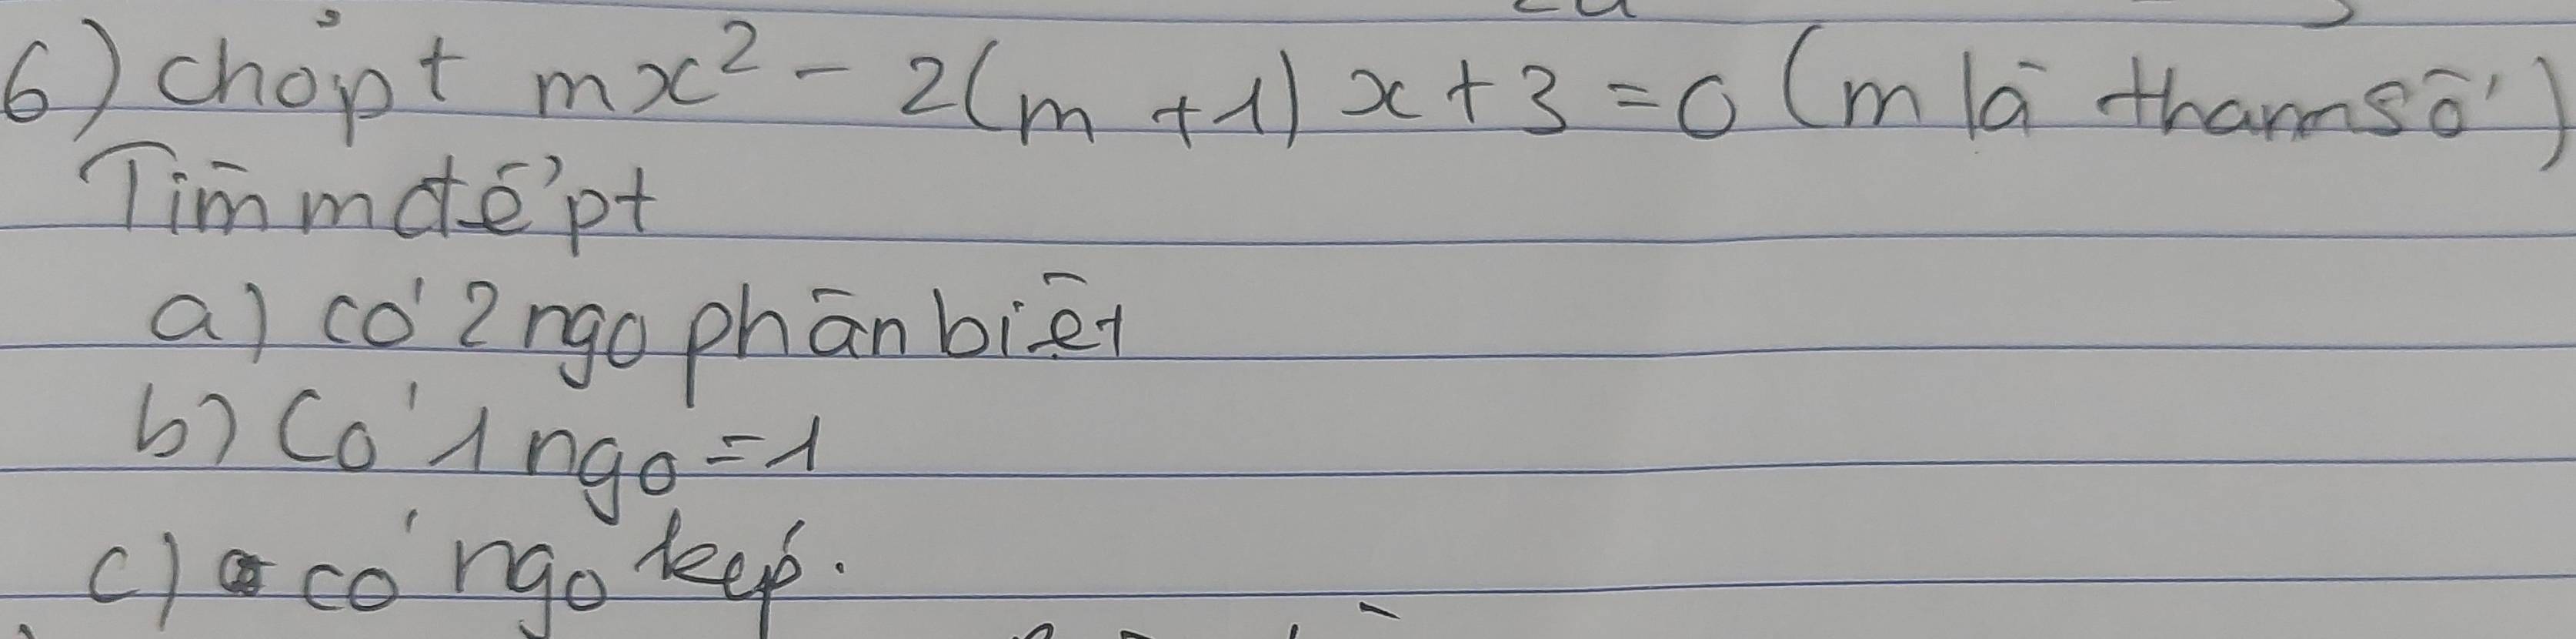 6) cho pt mx² - 2(m + 1) x + 3 = 0 (m là tham số)
Tìm m để pt
a) có 2 ngo phân biệt
b) Có 1 ngo = 1
c) có ngo kép.